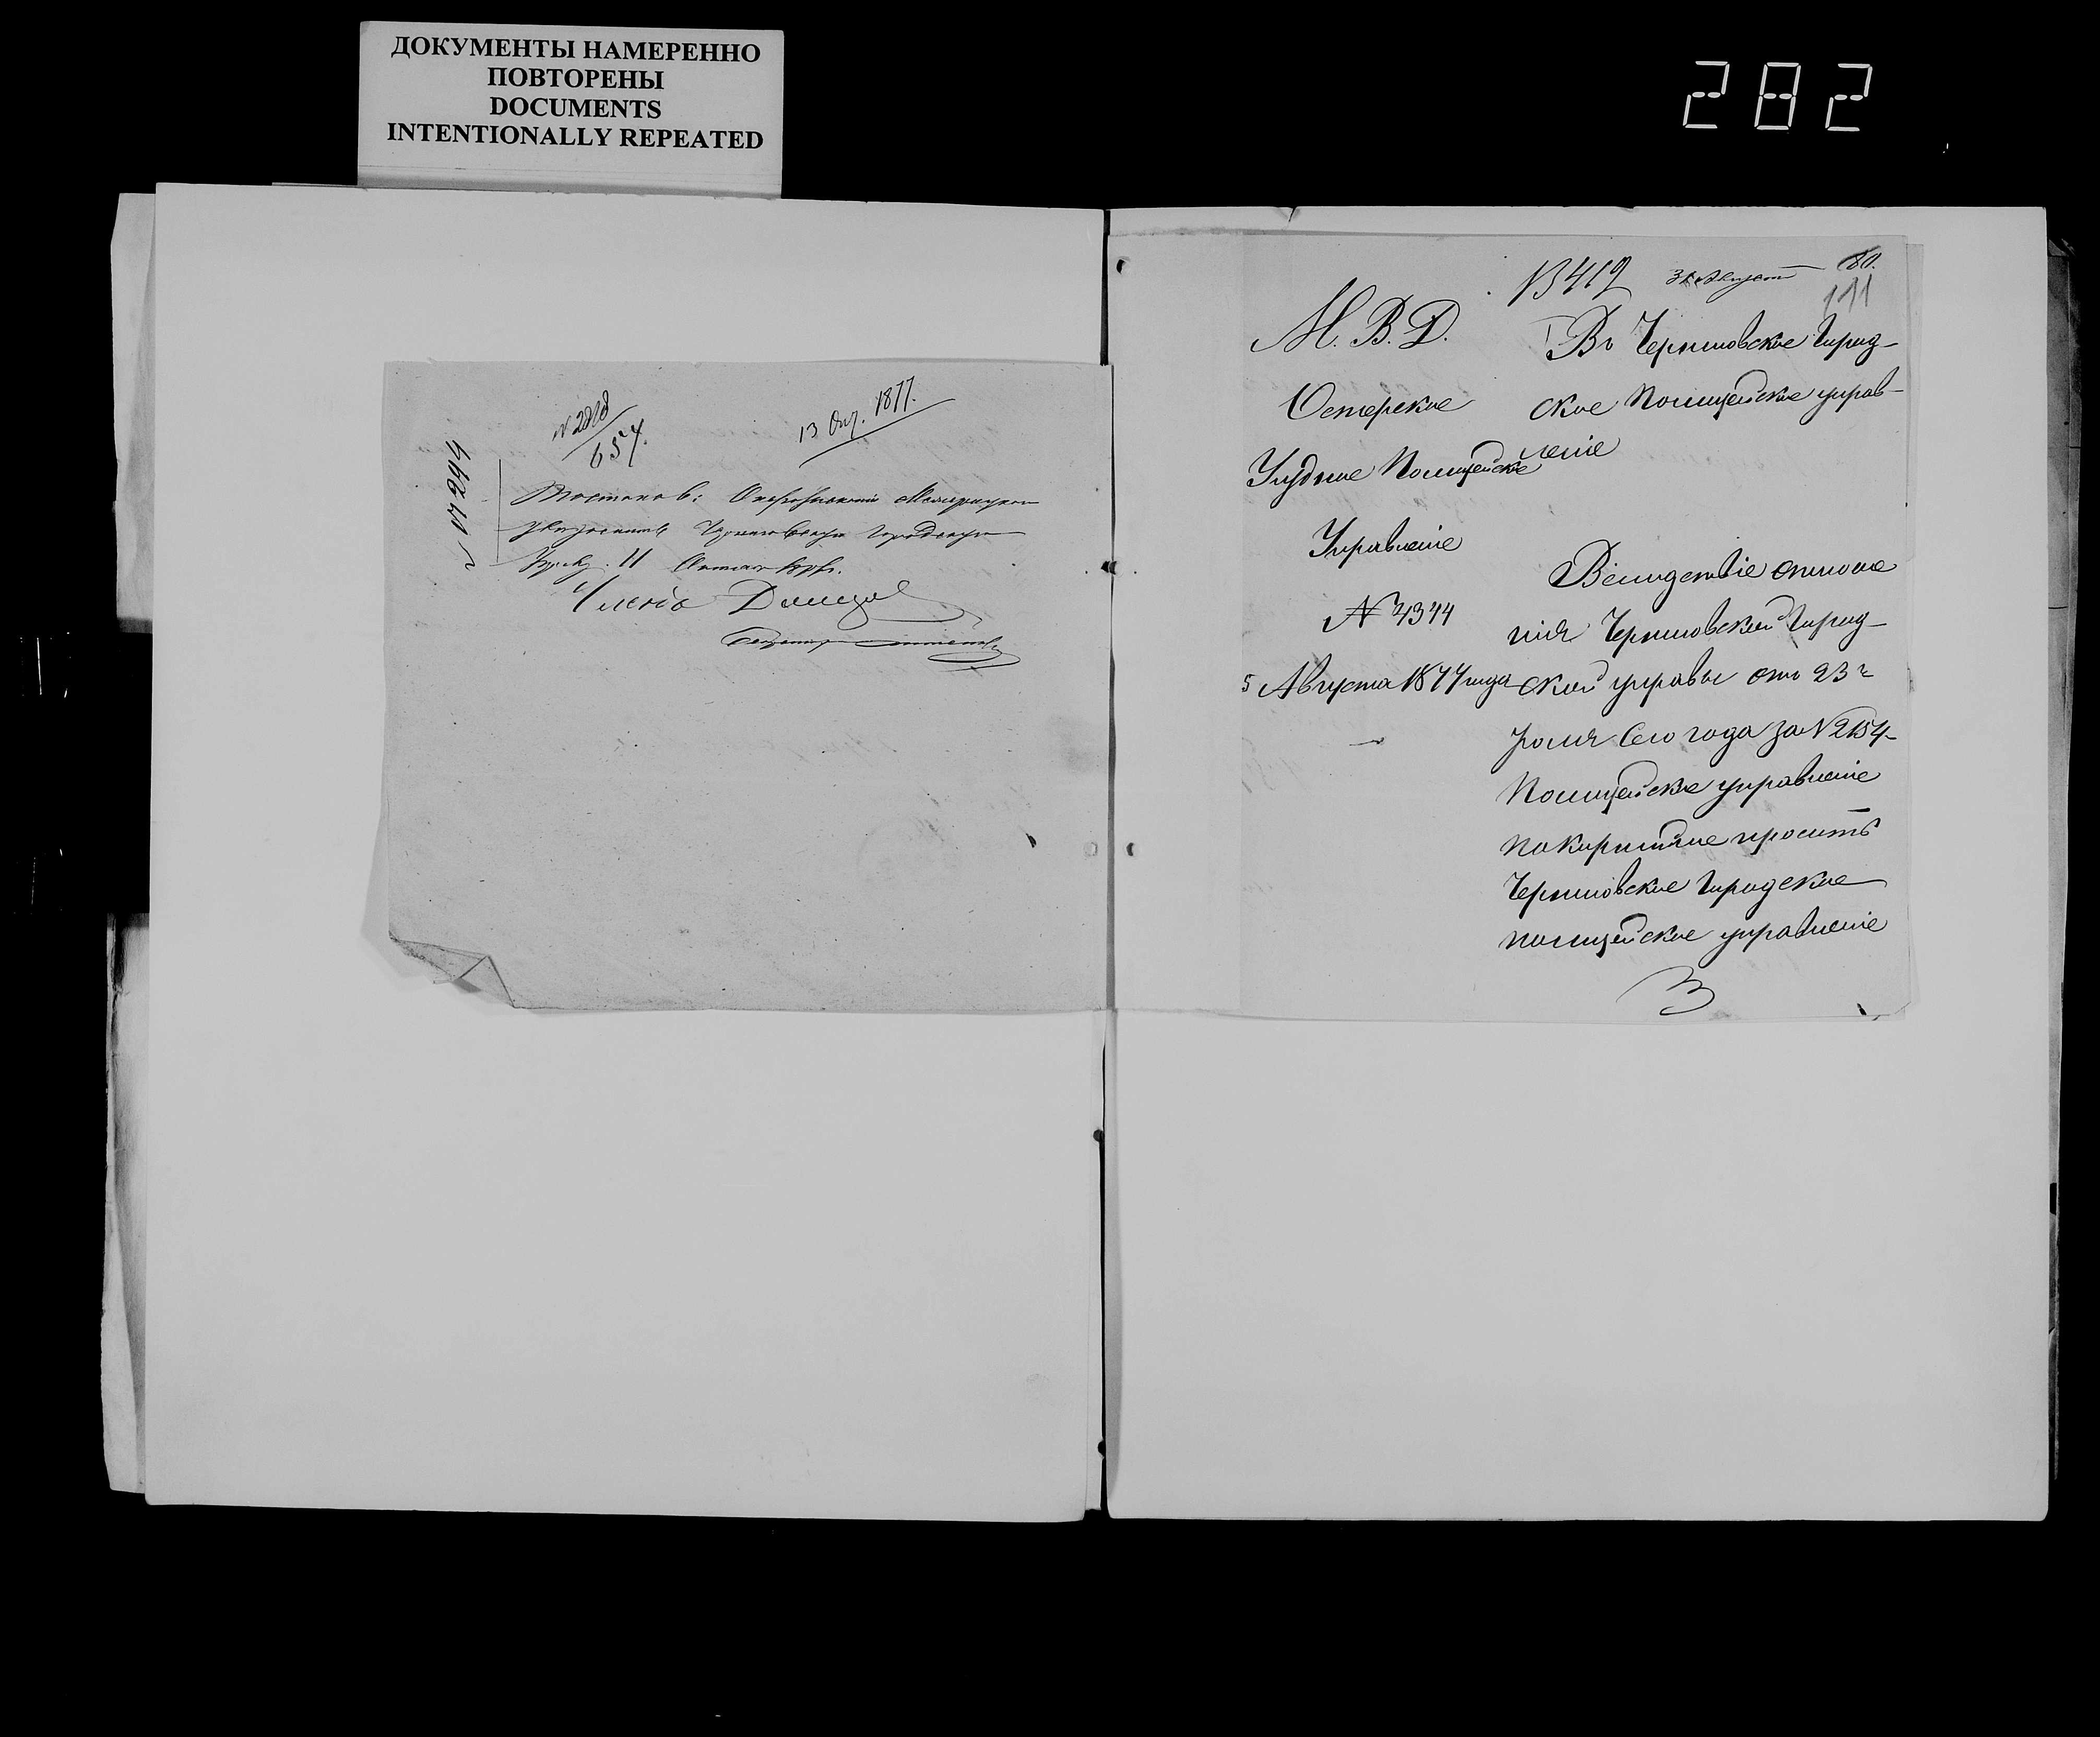 ДОКУМЕНТЫ НАМЕРЕННО
ПОВТОРЕНЫ
DOCUMENTS
INTENTIONALLY REPEATED
282
№ 2218
657.
13 Окт. 1877.
№ 17294
Городскую
11 Октября
Члено
13412 31 Августа 80.
111
М. В. Д.
Остерское
Уѣздное Полицейское
Управление
№ 4344
5 Августа 1877 года
Въ Черниговское Город-
ское Полицейское управ-
леніе
Вслѣдствіе отноше
нія Черниговской Город-
ской управы отъ 23
Іюля сего года за № 2154
Полицейское управленіе
покорнѣйше проситъ
Черниговское Городское
полицейское управленіе